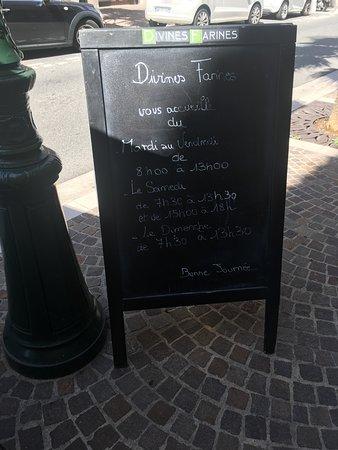 DIVINES FARINES
Divines Farines
vous accueille
du
Mardi au Vendredi
de
8h00 à 13h00
_ Le Samedi
de 7h30 à 13h30
et de 15h00 à 18h
_ Le Dimanche
de 7h30 à 13h30
Bonne Journée